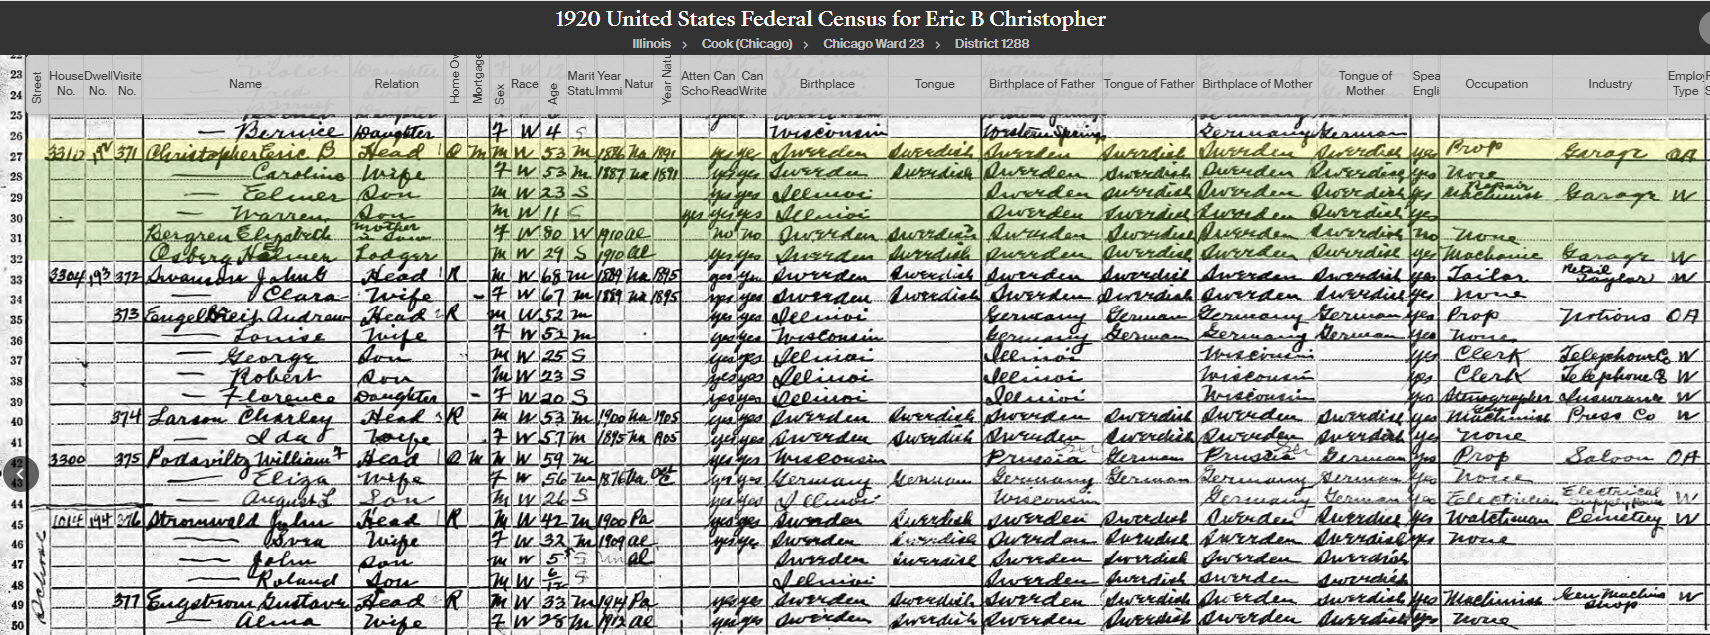 1920 United States Federal Census for Eric B Christopher
Illinois › Cook (Chicago) › Chicago Ward 23 › District 1288
Street House No. Dwel No. Visite No. Name Relation Home O Mortgage Sex Race Age Marit Statu Year Immi Natur Year Natu Atten Scho Can Read Can Write Birthplace Tongue Birthplace of Father Tongue of Father Birthplace of Mother Tongue of Mother Spea Engli Occupation Industry Emplo Type
23
24
25
26 — Bernice Daughter F W 4 S Wisconsin Western Springs Germany German
27 3310 192 371 Christopher Eric B Head 1 O M M W 53 M 1886 Na 1891 yes yes Sweeden Sweedish Sweeden Sweedish Sweeden Sweedish yes Prop Garage OA
28 — Caroline Wife F W 53 M 1887 Na 1891 yes yes Sweeden Sweedish Sweeden Sweedish Sweeden Sweedish yes None
29 — Eelmer Son M W 23 S yes yes Illinoi Sweeden Sweedish Sweeden Sweedish yes Repair Machinist Garage W
30 — Warren Son M W 11 S yes yes yes Illinoi Sweeden Sweedish Sweeden Sweedish yes
31 Bergren Elizabeth mother in law F W 80 W 1910 al no no Sweeden Sweedish Sweeden Sweedish Sweeden Sweedish no None
32 Osberg Lodger M W 29 S 1910 al yes yes Sweeden Sweedish Sweeden Sweedish Sweeden Sweedish yes Machanic Garage W
33 3304 193 372 Swanson John G Head 1 R M W 68 M 1889 Na 1895 yes yes Sweeden Sweedish Sweeden Sweedish Sweeden Sweedish yes Tailor Retail Taylor W
34 — Clara Wife — F W 67 M 1889 Na 1895 yes yes Sweeden Sweedish Sweeden Sweedish Sweeden Sweedish yes None
35 373 Andrew Head 2 R M W 52 M yes yes Illinoi Germany German Germany German yes Prop Notions OA
36 — Louise Wife F W 52 M yes yes Wisconsin Germany German Germany German yes None
37 — George Son M W 25 S yes yes Illinoi Illinoi Wisconsin yes Clerk Telephone Co W
38 — Robert Son M W 23 S yes yes Illinoi Illinoi Wisconsin yes Clerk Telephone Co W
39 — Florence Daughter — F W 20 S yes yes Illinoi Illinoi Wisconsin yes Stenographer Insurance W
40 374 Larson Charley Head 3 R M W 53 M 1900 Na 1905 yes yes Sweeden Sweedish Sweeden Sweedish Sweeden Sweedish yes Machinist Press Co W
41 — Ida Wife F W 57 M 1895 Na 1905 yes yes Sweeden Sweedish Sweeden Sweedish Sweeden Sweedish yes None
42 3300 375 Podaviltz William F Head 1 O M M W 59 M yes yes Wisconsin Prussia Ger German Prussia Ger German yes Prop Saloon OA
43 — Eliza Wife F W 56 M 1876 Na yes yes Germany German Germany German Germany German yes None
44 — August L Son M W 26 S yes yes Illinoi Wisconsin Germany German yes Eelectrician Electrical W
45 1014 194 376 Stromwald John Head 1 R M W 42 M 1900 Pa yes yes Sweeden Sweedish Sweeden Sweedish Sweeden Sweedish yes Watchman Cemetery W
46 — Svea Wife F W 32 M 1909 al yes yes Sweeden Sweedish Sweeden Sweedish Sweeden Sweedish yes None
47 — John Son M W 5 S al Sweeden Sweedish Sweeden Sweedish Sweeden Sweedish
48 — Roland Son M W 6/12 S Illinoi Sweeden Sweedish Sweeden Sweedish
49 377 Engstrom Gustave Head 2 R M W 33 M 1914 Pa yes yes Sweeden Sweedish Sweeden Sweedish Sweeden Sweedish yes Machinist Gen Machine Shop W
50 — Alma Wife F W 28 M 1912 al yes yes Sweeden Sweedish Sweeden Sweedish Sweeden Sweedish yes None